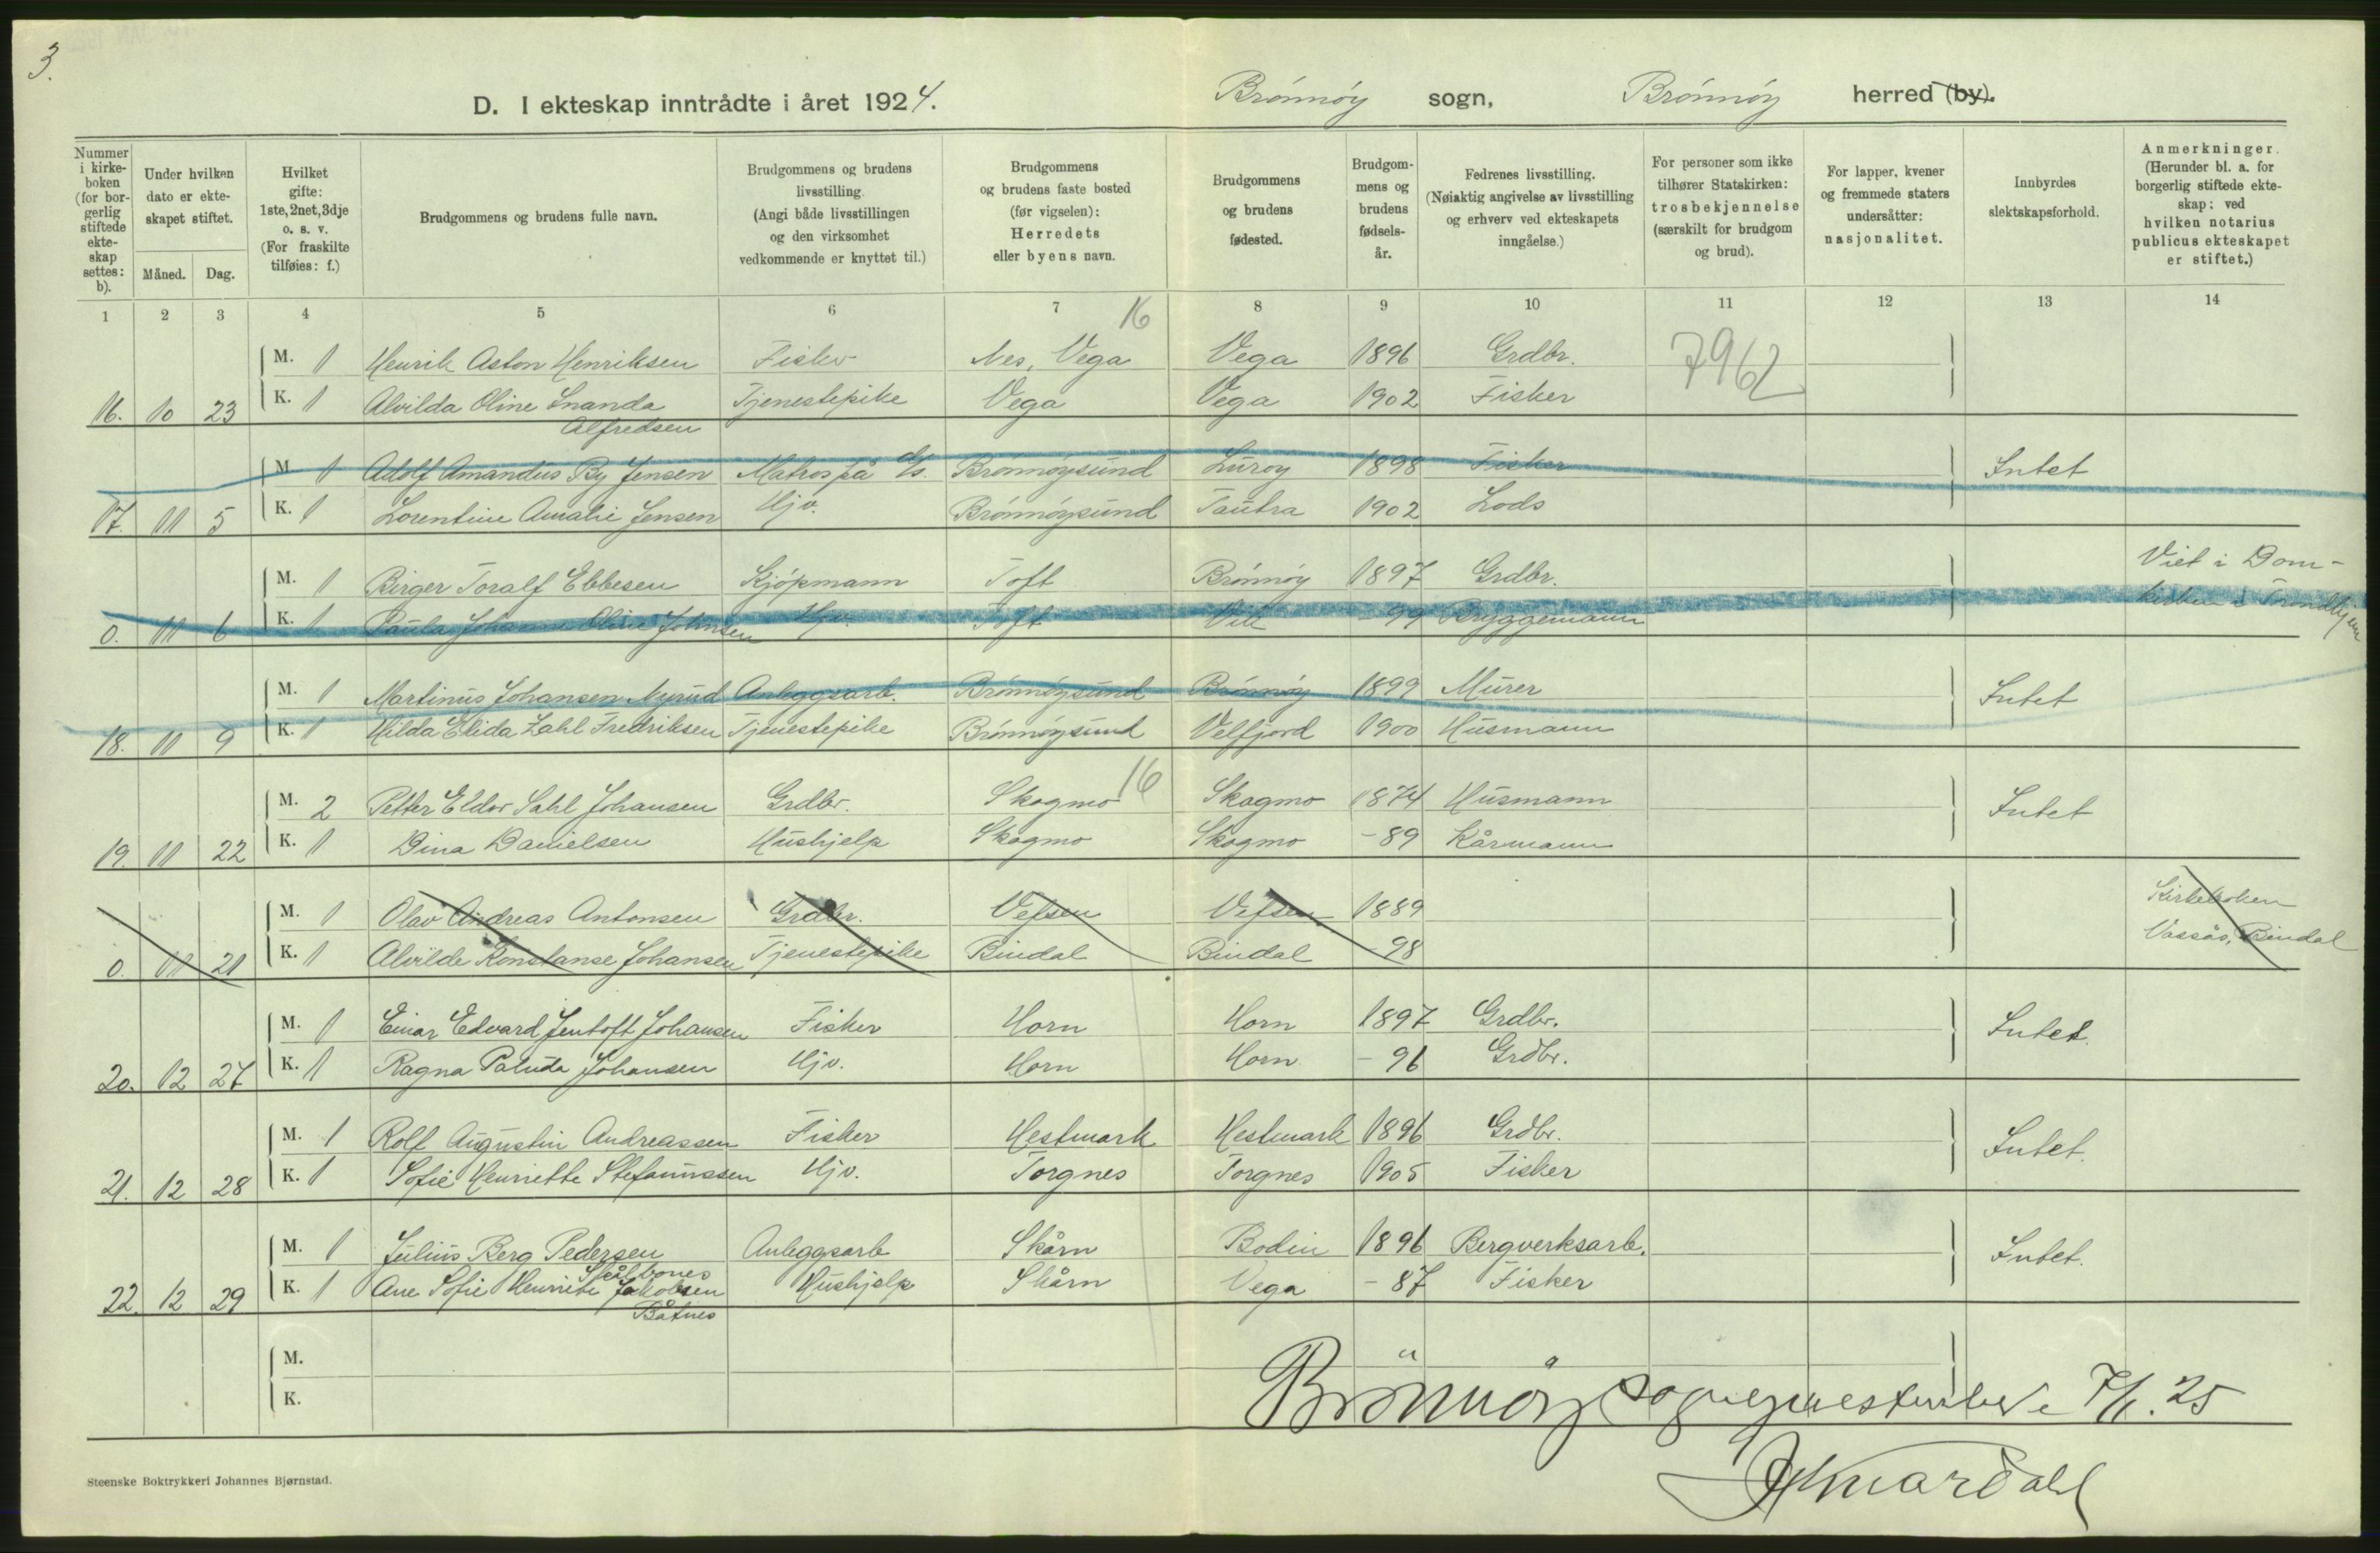 3.
D. I ekteskap inntrådte i året 1924. Brönnöy sogn, Brönnöy herred (by).
Nummer i kirkeboken (for borgerlig stiftede ekteskap settes: b).
Under hvilken dato er ekteskapet stiftet.
Måned. Dag.
Hvilket gifte: 1ste, 2net, 3dje o. s. v. (For fraskilte tilføies: f.)
Brudgommens og brudens fulle navn.
Brudgommens og brudens livsstilling. (Angi både livsstillingen og den virksomhet vedkommende er knyttet til.)
Brudgommens og brudens faste bosted (før vigselen): Herredets eller byens navn.
Brudgommens og brudens fødested.
Brudgommens og brudens fødselsår.
Fedrenes livsstilling. (Nøiaktig angivelse av livsstilling og erhverv ved ekteskapets inngåelse.)
For personer som ikke tilhører Statskirken: trosbekjennelse (særskilt for brudgom og brud).
For lapper, kvener og fremmede staters undersåtter: nasjonalitet.
Innbyrdes slektskapsforhold.
Anmerkninger. (Herunder bl. a. for borgerlig stiftede ekteskap: ved hvilken notarius publicus ekteskapet er stiftet.)
1 2 3 4 5 6 7 8 9 10 11 12 13 14
16
M. 1 Henrik Aston Henriksen Fisker Nes, Vega Vega 1896 Grdbr. 7962
16. 10 23 K. 1 Alvilda Oline Inanda Tjenestepike Vega Vega 1902 Fisker
Alfredsen
M. 1 Adolf Amandus By Jensen Matros på d/s. Brönnöysund Luröy 1898 Fisker Intet
17. 11 5 K. 1 Lorentine Amalie Jensen Hjv. Brönnöysund Tautra 1902 Lods
M. 1 Birger Toralf Ebbesen Kjöpmann Toft Brönnöy 1897 Grdbr. Viet i Dom-
0. 11 6 K. 1 Paula Johanne Oline Johnsen Hjv. Toft - 99 Bryggemann kirken i Trondhjem
M. 1 Martinus Johansen Nyrud Anleggsarb. Brönnöysund Brönnöy 1899 Murer Intet
18. 11 9 K. 1 Hilda Elida Zahl Fredriksen Tjenestepike Brönnöysund Velfjord 1900 Husmann
16
M. 2 Petter Eldor Sahl Johansen Grdbr. Skogmo Skogmo 1874 Husmann Intet
19. 11 22 K. 1 Dina Danielsen Hushjelp Skogmo Skogmo - 89 Kårmann
M. 1 Olav Andreas Antonsen Grdbr. Vefsen Vefsen 1889 Kirkeboken
0. 11 21 K. 1 Alvilde Konstanse Johansen Tjenestepike Bindal Bindal 98 Vassås, Bindal
M. 1 Einar Edvard Jentoft Johansen Fisker Horn Horn 1897 Grdbr. Intet.
20. 12 27 K. 1 Ragna Paluda Johansen Hjv. Horn Horn - 96 Grdbr.
M. 1 Rolf Augustin Andreassen Fisker Hestmark Hestmark 1896 Grdbr. Intet.
21. 12 28 K. 1 Sofie Henriette Stefanussen Hjv. Torgnes Torgnes 1905 Fisker
M. 1 Julius Berg Pedersen Anleggsarb Skårn Bodin 1896 Bergverksarb. Intet.
Skålbones
22. 12 29 K. 1 Ane Sofie Henriette Jakobsen Hushjelp Skårn Vega - 87 Fisker
Båtnes
M.
K.
Brönnöy sogneprestembede 7/1. 25
Steenske Boktrykkeri Johannes Bjørnstad.